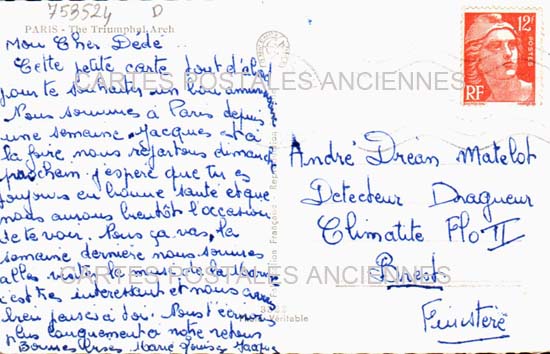 753524 D
PARIS - The Triumphal Arch
Mon Cher Dédé
Cette petite carte tout d'abord
pour te souhaiter un bon anniversaire
Nous sommes à Paris depuis
une semaine. Jacques est à
la foire, nous repartons dimanche
prochain. J'espère que tu es
toujours en bonne santé et que
nous aurons bientôt l'occasion
de te voir. Nous ça vas, la
semaine dernière nous sommes
allés visiter la musée de la Marine
c'est très interessant et nous avons
bien pensé à toi.
plus longuement à notre retour
Bonnes Bises Marie Louise Jacques
12F
POSTES
RF
André Dréan Matelot
Détecteur Dragueur
Climatite Flo II
Brest
Finistère
CARTES POSTALES ANCIENNES
CARTES POSTALES ANCIENNES
Véritable